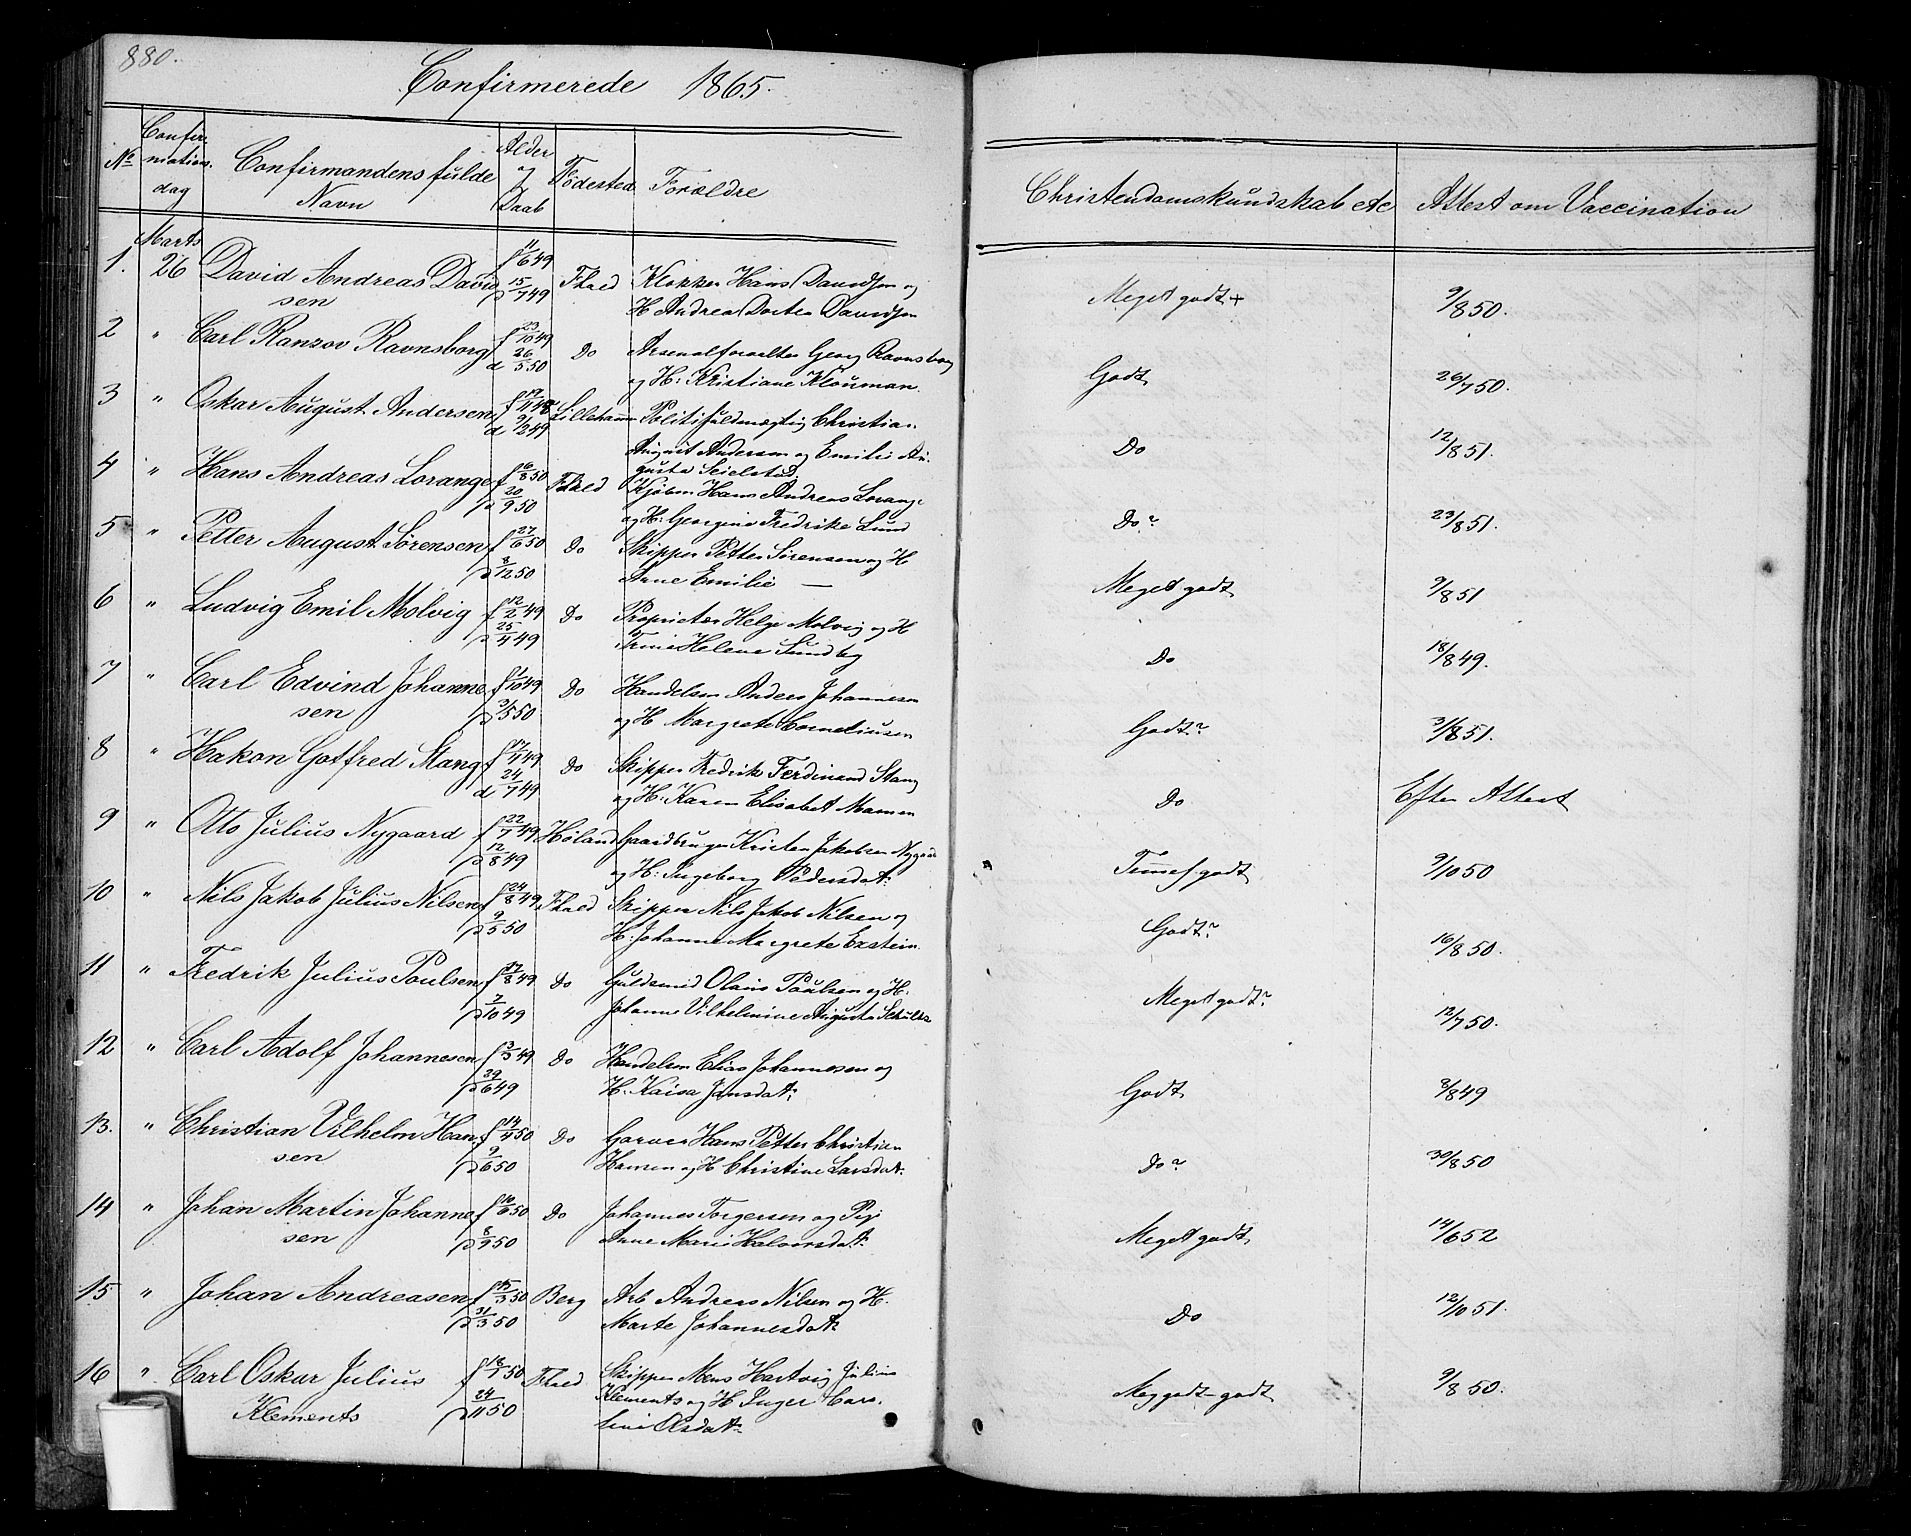 880.
Confirmerede 1865.
No Confir-mations dag Confirmandens fulde Navn Alder og Daab Fødested Forældre Christendomskundskab etc Attest om Vaccination
1. Marts 26 David Andreas David f 11/6 49 Fhald Klokker Hans Davidsen og Meget godt + 9/8 50.
sen D 15/7 49 H Andrea Dortea Davidsen
2 " Carl Ranzov Ravnsborg f 23/10 49 Do Arsenalforvalter Georg Ravnsborg Godt 26/7 50.
d 26/5 50 og H: Kristiane Klouman
3 " Oskar August Andersen Lillehamm Politifuldmægtig Christian Do 12/8 51.
d 9/2 49 August Andersen og Emilie Au-
gusta Seielstad
4 " Hans Andreas Lorange f 16/8 50 Fhald Kjøbm Hans Andreas Lorange Do? 23/8 51.
D 20/9 50 og H: Georgine Fredrike Lund
5 " Petter August Sørensen f 27/6 50 Do Skipper Petter Sørensen og H Meget godt 9/8 51
D 8/12 50 Anne Emilie —
6 " Ludvig Emil Molvig f 12/2 49 Do Proprietær Helge Molvig og H Do 18/8 49.
D 25/4 49 Trine Helene Sundby
7 " Carl Edvind Johanne f 1/10 49 Do Handelsm Anders Johannesen Godt? 3/8 51.
sen D 3/5 50 og H Margrete Corneliusen
8 " Hakon Gotfred Stang Do Skipper Fredrik Ferdinand Stang Do Efter Attest
d 24/7 49 og H: Karen Elisabet Mamen
9 " Otto Julius Nygaard f 22/7 49 Høland Gaardbruger Kristen Jakobsen Nygaard Temmel godt 9/10 50
D 12/8 49 og H: Ingeborg Pedersdat:
10 " Nils Jakob Julius Nilsen f 24/8 49 Fhald Skipper Nils Jakob Nilsen og Godt? 16/8 50.
D 9/5 50 H: Johanne Margrete Exstein
11 " Fredrik Julius Poulsen f 17/8 49 Do Guldsmid Olaus Paulsen og H. Meget godt? 12/7 50.
D 7/10 49 Johanne Vilhelmine Augusta Schultz
12 " Carl Adolf Johannesen f 3/3 49 Do Handelsm Elias Johannesen og Godt 8/8 49
D 29/6 49 H: Kaisa Jansdat:
13. " Christian Vilhelm Han f 14/4 50 Do Garver Hans Petter Christian Do? 30/8 50
sen D 9/6 50 Hansen og H Christine Larsdat:
14 " Johan Martin Johanne f 16/6 50 Do Johannes Torgersen og Pige Meget godt 14/6 52
sen D 8/9 50 Anne Marie Halvorsdat:
15 " Johan Andreasen f 15/3 50 Berg Arb Andreas Nilsen og H. Do 12/10 51.
D 31/3 50 Marte Johannesdat:
16 " Carl Oskar Julius f 18/7 50 Fhald Skipper Mens Hartvig Julius Meg godt - godt 9/8 50.
Klements D 24/11 50 Klements og H Inger Caro-
line Olsdat: